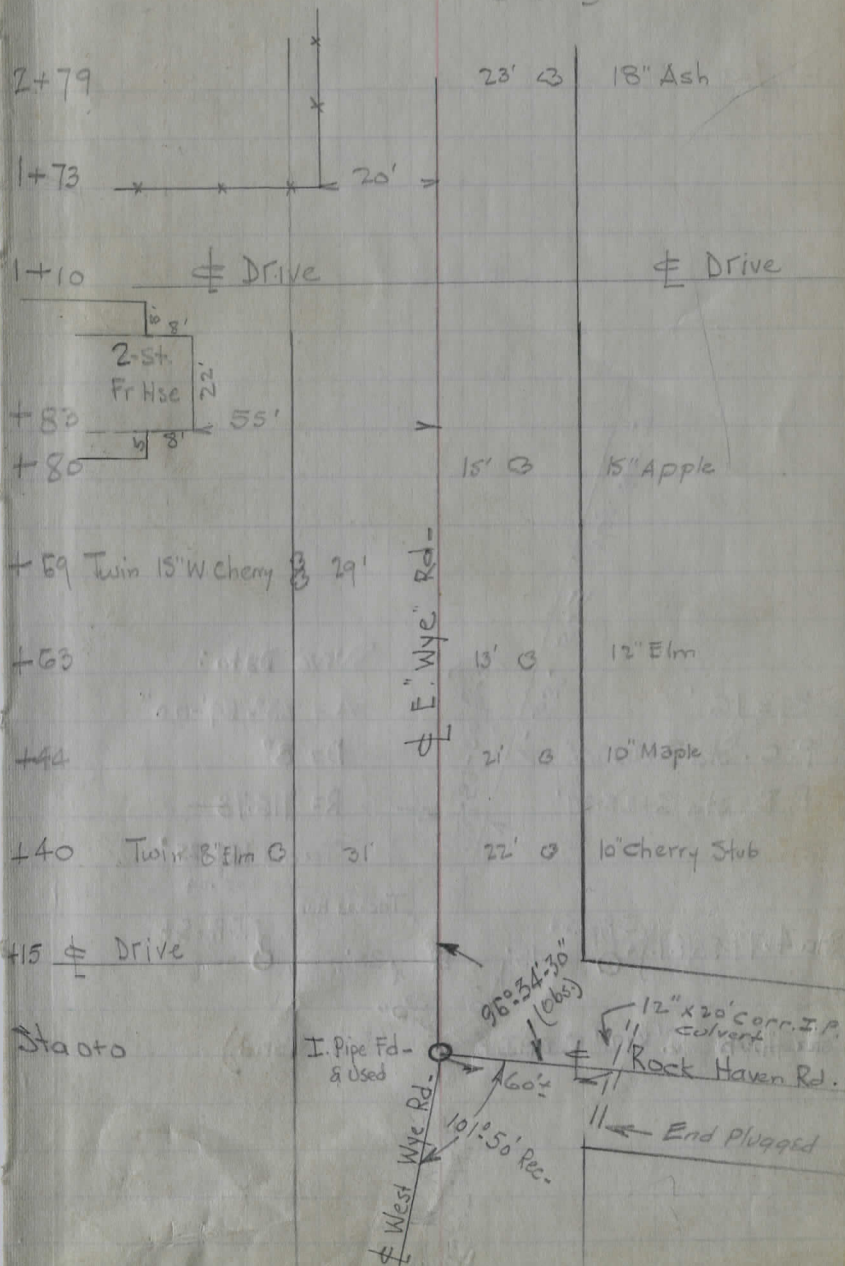 2+79 23' 18" Ash
1+73 20'
1+10 ℄ Drive ℄ Drive
8' 8'
2-St.
Fr Hse 22'
+83 55'
5' 8'
+80 15' 15" Apple
+69 Twin 15" W. Cherry 29'
℄ E. "Wye" Rd-
+53 13' 12" Elm
+44 21' 10" Maple
+40 Twin 8" Elm 31' 22' 10" Cherry Stub
+15 ℄ Drive
96°-34'-30"
(Obs.)
12" x 20' Corr. I.P.
Culvert
Sta 0+0 I. Pipe Fd-
& Used
℄ Rock Haven Rd.
60'±
101°-50' Rec-
End Plugged
℄ West Wye Rd-